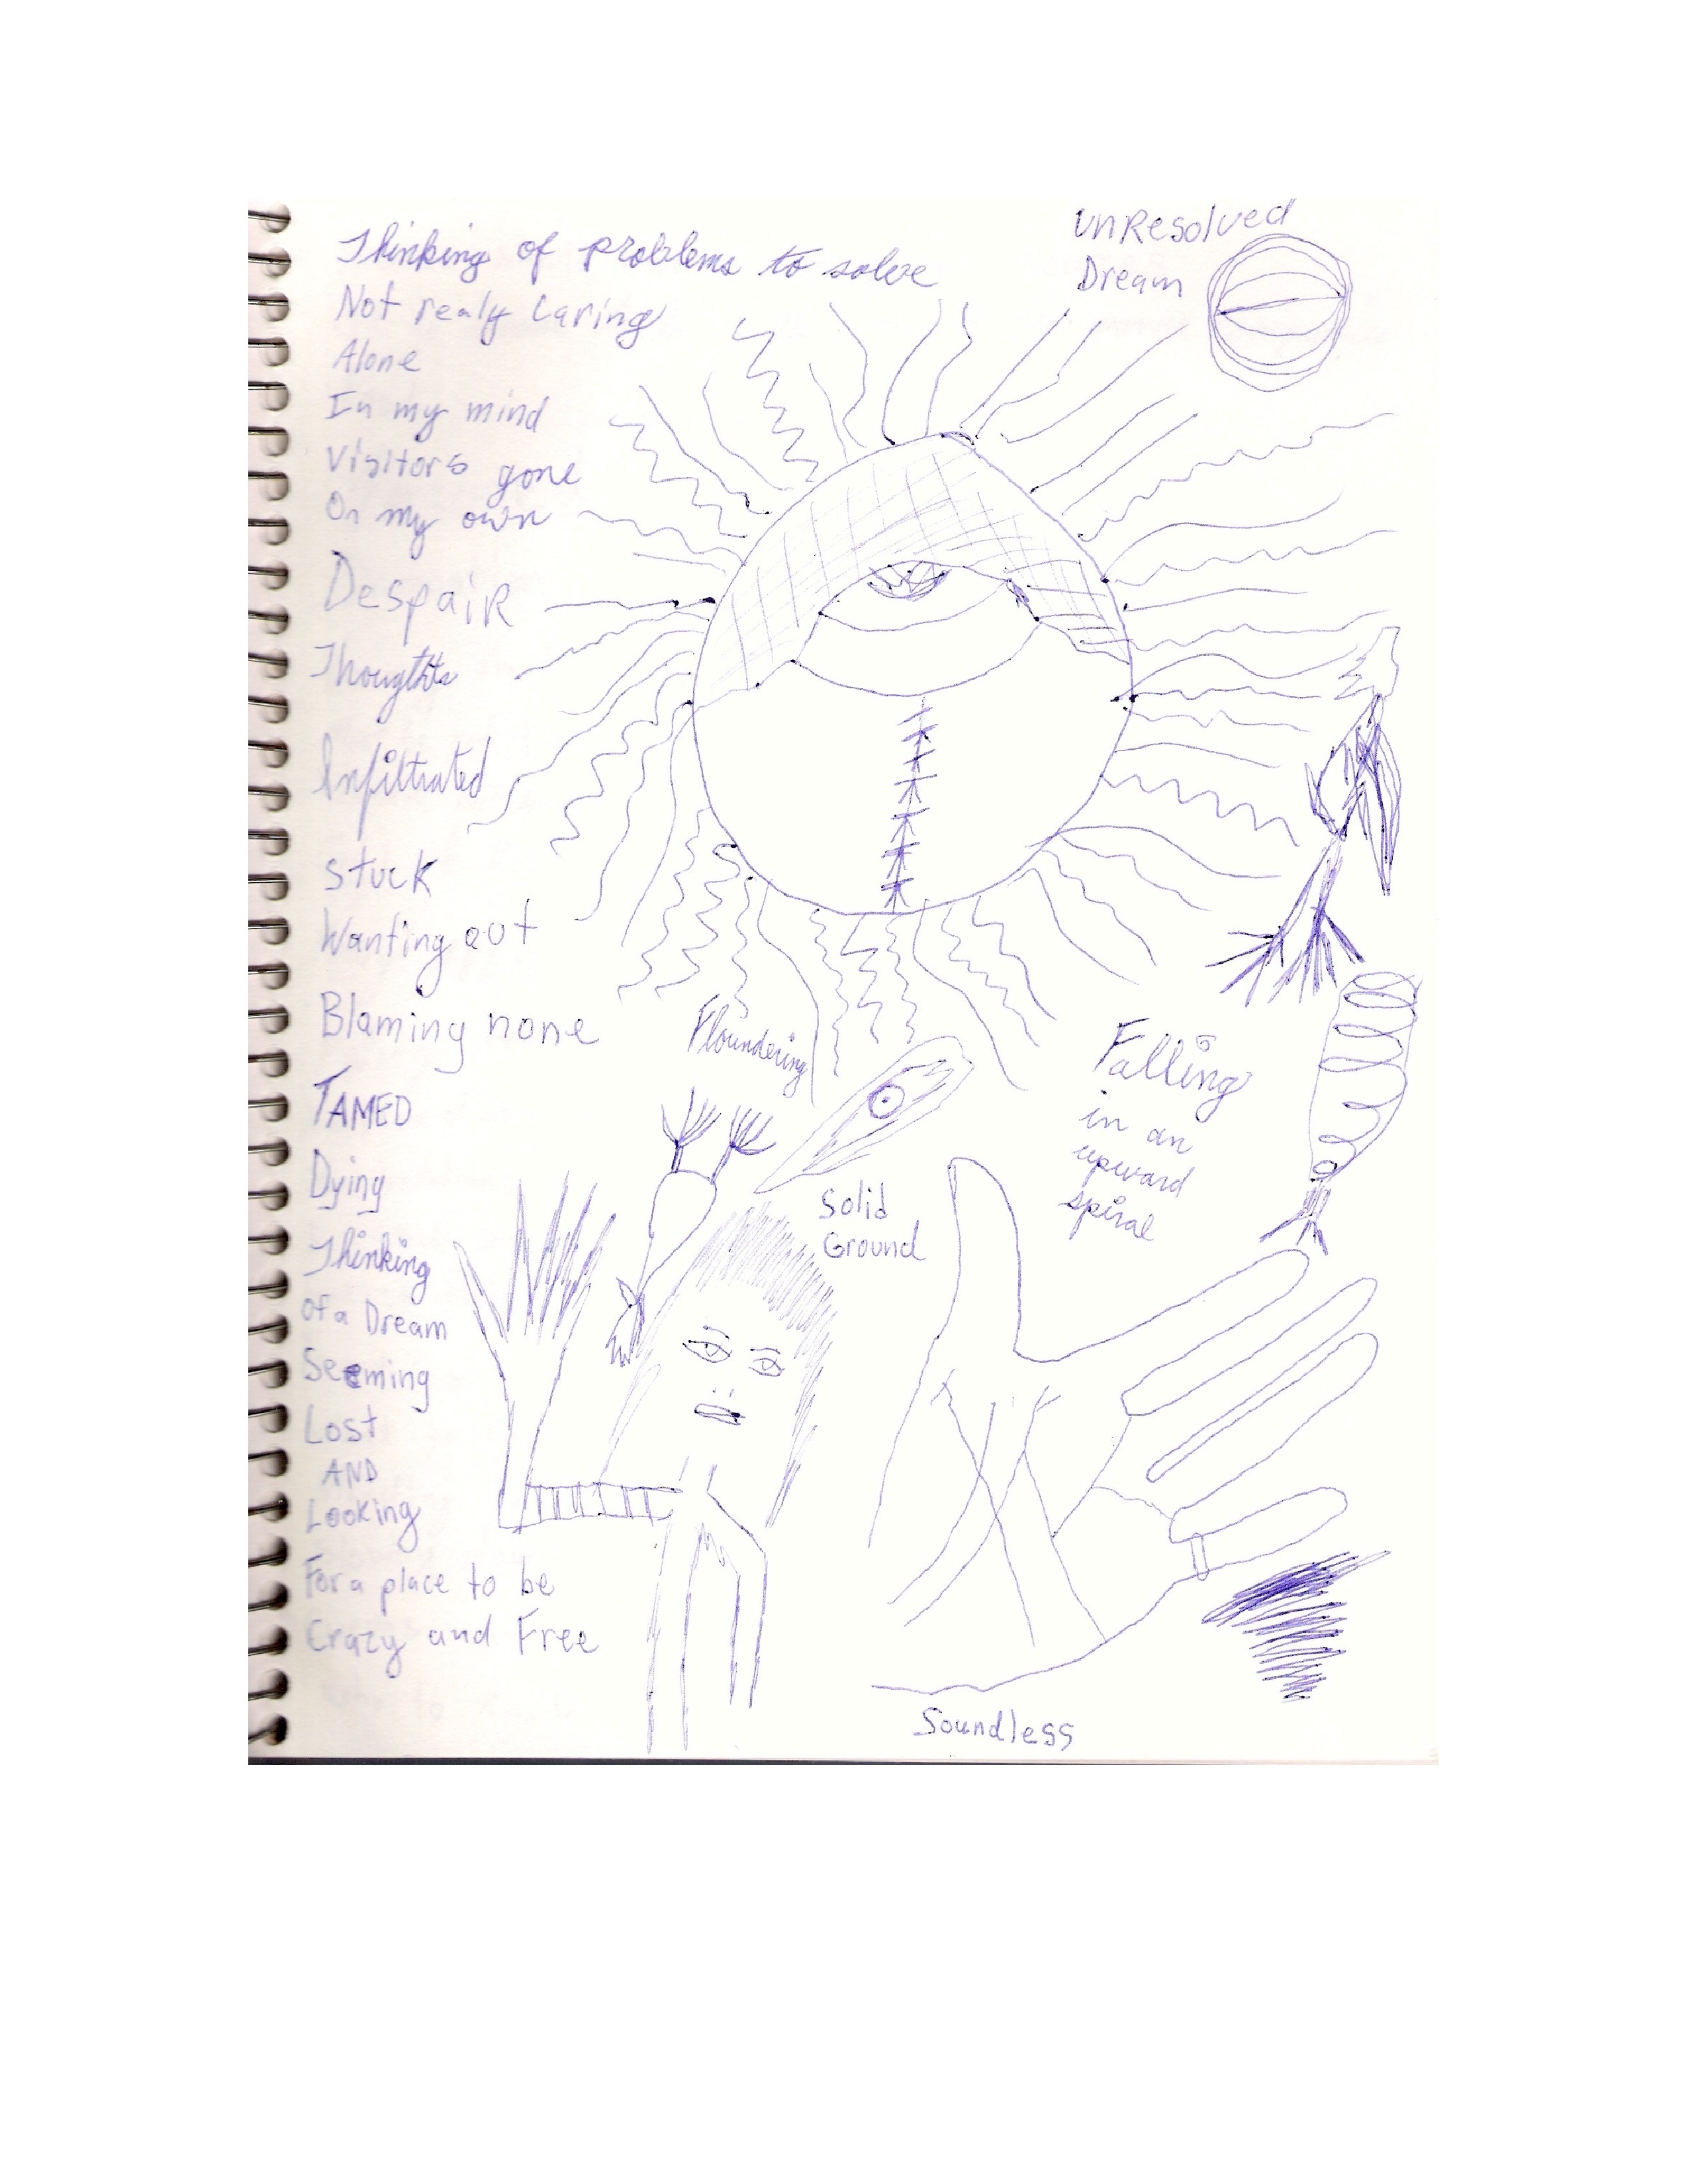 Thinking of problems to solve
Not realy Caring
Alone
In my mind
Visitors gone
On my own
DespaiR
Thougthts
Infiltrated
stuck
Wanting out
Blaming none
TAMED
Dying
Thinking
Of a Dream
Seeming
Lost
AND
Looking
For a place to be
Crazy and Free
UnResolved
Dream
Floundering
Solid
Ground
Falling
in an
upward
spiral
Soundless